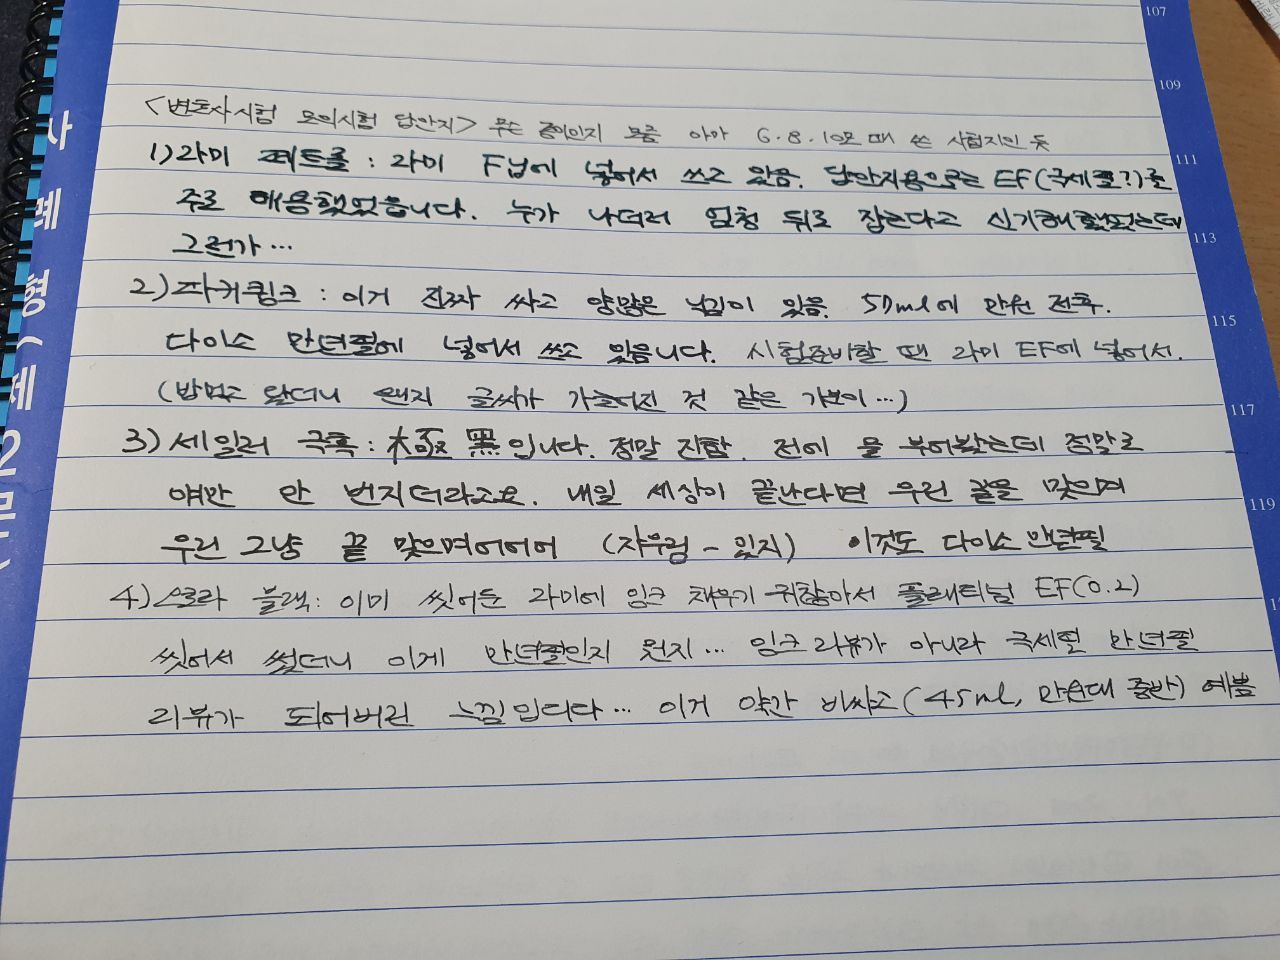 107
109
<변호사시험 모의시험 답안지> 무슨 종이인지 모름 아마 6.8.10모 때 쓴 시험지인 듯
111
1) 라미 페트롤 : 라미 F닙에 넣어서 쓰고 있음. 답안지용으로는 EF(극세필?)를
주로 애용했었습니다. 누가 나더러 엄청 뒤로 잡는다고 신기해 했었는데
113
그런가…
2) 파커큉크 : 이거 진짜 싸고 양많은 느낌이 있음. 57ml에 만원 전후.
115
다이소 만년필에 넣어서 쓰고 있습니다. 시험준비할 땐 라미 EF에 넣어서.
(밥먹고 왔더니 왠지 글씨가 가늘어진 것 같은 기분이…)
117
3) 세일러 극흑 : 極黑입니다. 정말 진함. 전에 물 부어봤는데 정말로
야만 안 번지더라고요. 내일 세상이 끝난다면 우린 끝을 맞으며
119
우린 그냥 끝 맞으며어어어 (자우림 - 있지) 이것도 다이소 만년필
4) 스크라 블랙 : 이미 씻어둔 라미에 잉크 채우기 귀찮아서 플래티넘 EF(0.2)
씻어서 썼더니 이게 만년필인지 뭔지… 잉크 리뷰가 아니라 극세필 만년필
리뷰가 되어버린 느낌입니다… 이거 약간 비싸고(45ml, 만원대 중반) 예쁨
사례형(제2문